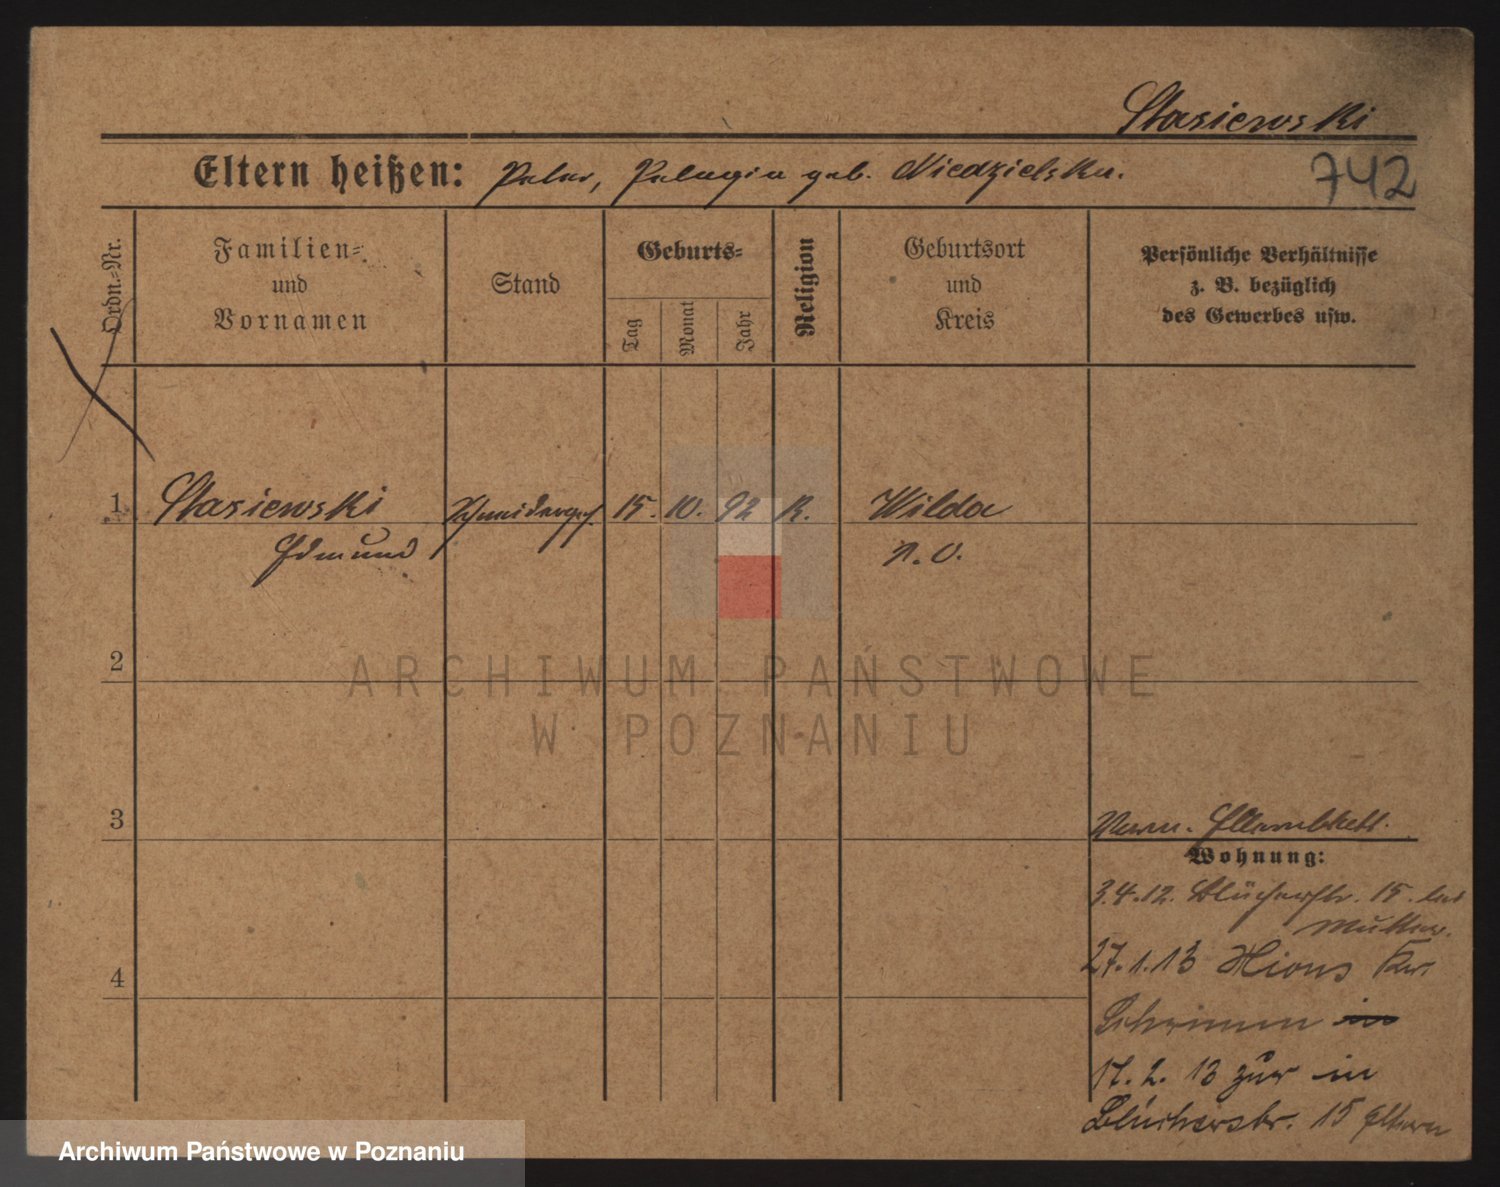 Stasiewski
Eltern heißen: Peter, Pelagia geb. Niedzielska.
742
Ordn.-Nr.
Familien-
und
Vornamen
Stand
Geburts-
Tag
Monat
Jahr
Religion
Geburtsort
und
Kreis
Persönliche Verhältnisse
z. B. bezüglich
des Gewerbes usw.
1 Stasiewski Schneiderges. 15. 10. 92 R. Wilda
Edmund
2
ARCHIWUM PAŃSTWOWE
W POZNANIU
3
Wohnung:
3.4.12. Blücherstr. 15. bei
Mutter.
27.1.13 Xions Kr.
4
Schrimm in
17. 2. 13 zur in
Blücherstr. 15 Eltern
Archiwum Państwowe w Poznaniu